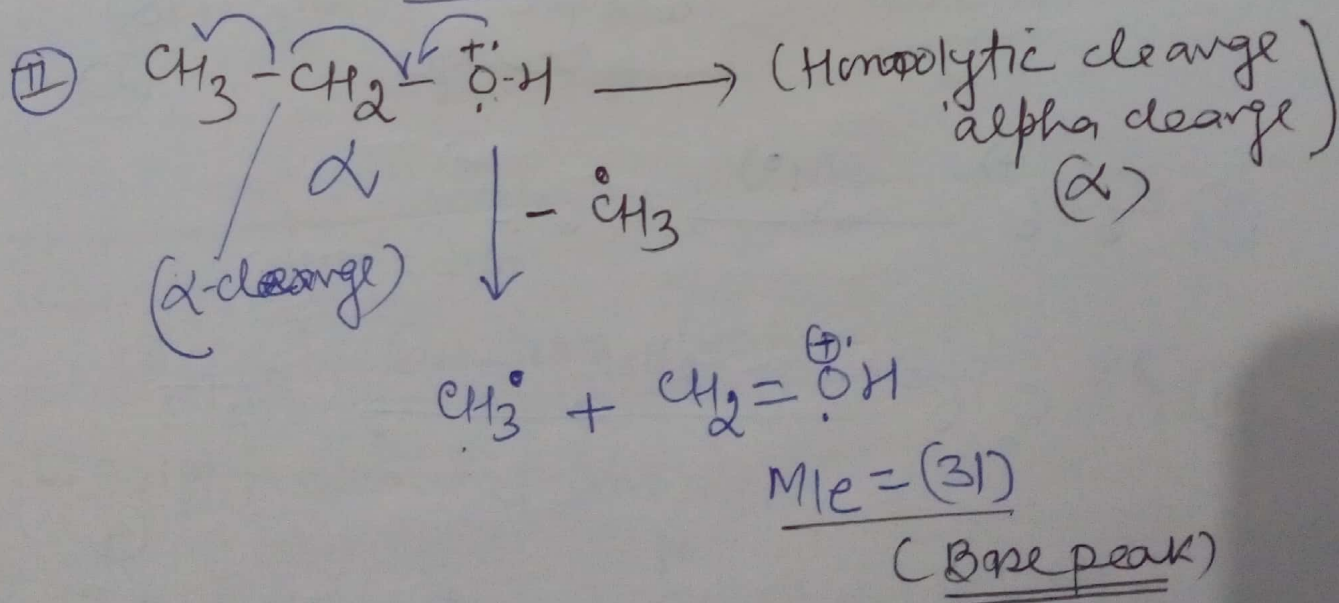 II CH3-CH2-O-H +. → (Homopolytic cleavge
alpha clearge)
α (α)
- CH3
(α-cleavge)
CH3• + CH2=OH ⊕
M/e=(31)
(Base peak)